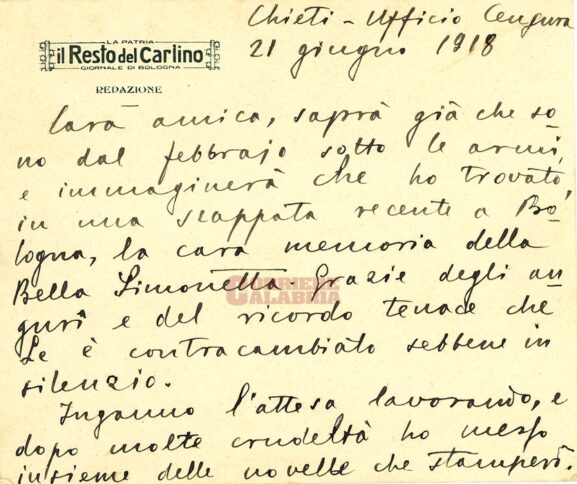 Chieti - Ufficio Censura
21 giugno 1918
LA PATRIA
il Resto del Carlino
GIORNALE DI BOLOGNA
REDAZIONE
Cara amica, saprà già che so-
no dal febbrajo sotto le armi,
e immaginerà che ho trovato,
in una scappata recente a Bo-
logna, la cara memoria della
Bella Simonetta. Grazie degli au-
guri e del ricordo tenace che
Le è contracambiato sebbene in
silenzio.
Inganno l'attesa lavorando, e
dopo molte crudeltà ho messo
insieme delle novelle che stamperò.
CORRIERE
CALABRIA